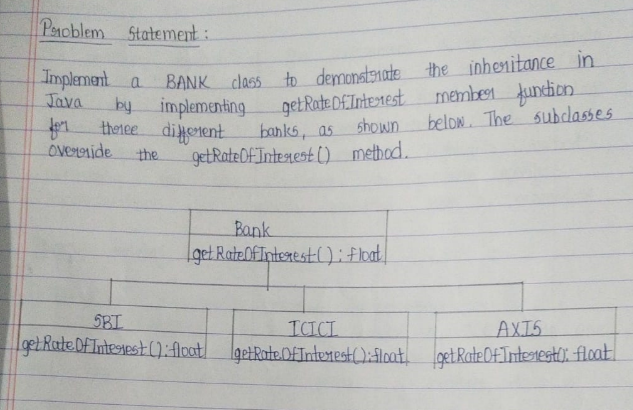 Problem Statement :
Implement a BANK class to demonstrate the inheritance in
Java by implementing getRateOfInterest member function
for three different banks, as shown below. The subclasses
override the getRateOfInterest() method.
Bank
getRateOfInterest() : float
SBI
getRateOfInterest() : float
ICICI
getRateOfInterest() : float
AXIS
getRateOfInterest() : float